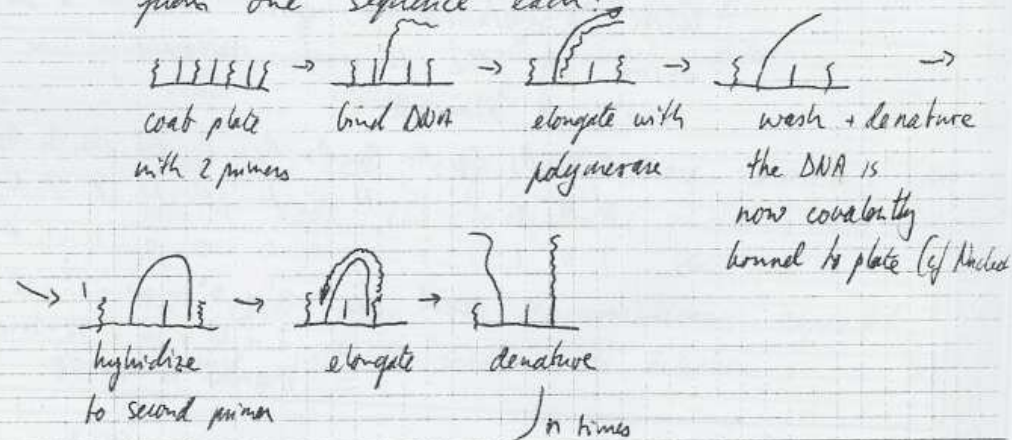 from one sequence each:
coat plate
with 2 primers
bind DNA
elongate with
polymerase
wash + denature
the DNA is
now covalently
bound to plate (cf
hybridize
to second primer
elongate
denature
n times